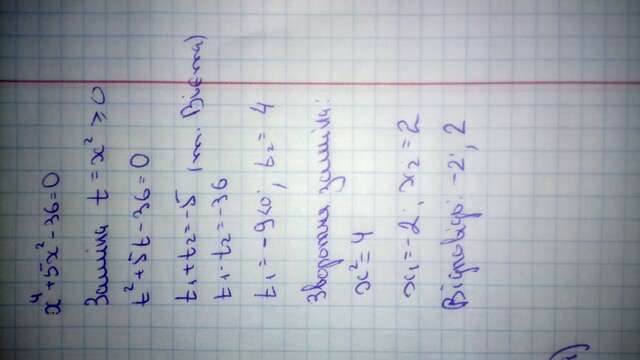 x⁴+5x²-36=0
Заміна t=x²≥0
t²+5t-36=0
t₁+t₂=-5 (т. Вієта)
t₁·t₂=-36
t₁=-9<0; t₂=4
Зворотна заміна:
x²=4
x₁=-2; x₂=2
Відповідь: -2; 2